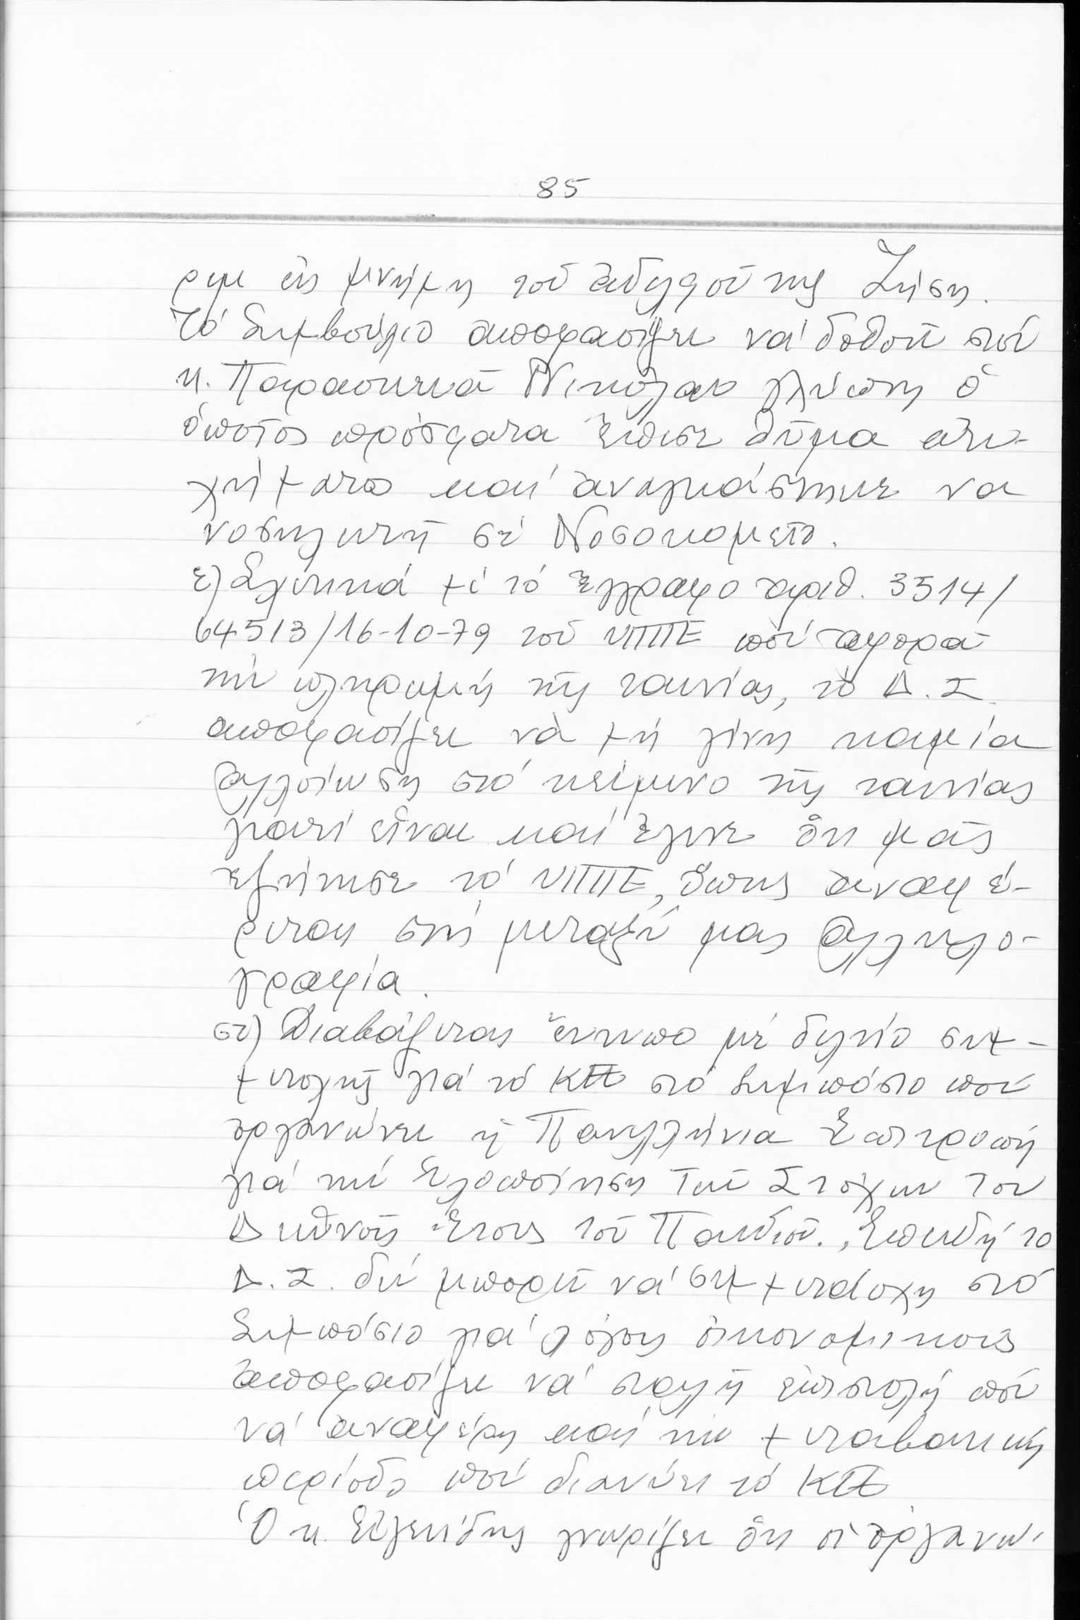 85
ρημ εἰς μνήμη τοῦ ἀδελφοῦ της Ζήση.
Τό Συμβούλιο ἀποφασίζει νά δοθοῦν στόν
κ. Παρασκευᾶ Νικόλαο γλύπτη ὁ
ὁποῖος πρόσφατα ἔπεσε θῦμα ατυ-
χήματος καί ἀναγκάστηκε να
νοσηλευτῆ σέ Νοσοκομεῖο.
ε) Σχετικά μέ τό ἔγγραφο ἀριθ. 3514/
64513/16-10-79 τοῦ ΥΠΠΕ πού ἀφορᾶ
τήν πληρωμή τῆς ταινίας, τό Δ.Σ.
ἀποφασίζει νὰ μή γίνη καμία
ἀλλοίωση στό κείμενο τῆς ταινίας
γιατί εἶναι καί ἔγινε ὅτι μᾶς
ἐζήτησε τό ΥΠΠΕ, ὅπως ἀναφέ-
ρεται στή μεταξύ μας ἀλληλο-
γραφία.
στ) Διαβάζεται ἔντυπο μέ δελτίο συμ-
μετοχῆς γιά τό ΚΠ στό Συμπόσιο πού
ὀργανώνει ἡ Πανελλήνια Ἐπιτροπή
γιά τήν Ὑλοποίηση Τῶν Στόχων Του
Διεθνοῦς Ἔτους τοῦ Παιδιοῦ. Ἐπειδή το
Δ.Σ. δέν μπορεῖ νά συμμετάσχη στό
Συμπόσιο γιά λόγους οἰκονομικους
ἀποφασίζει νά σταλῆ ἐπιστολή πού
νά ἀναφέρη καί τήν μεταβατική
περίοδο πού διανύει τό ΚΠ
Ὁ κ. Εὐγενίδης γνωρίζει ὅτι οἱ ὀργανω-